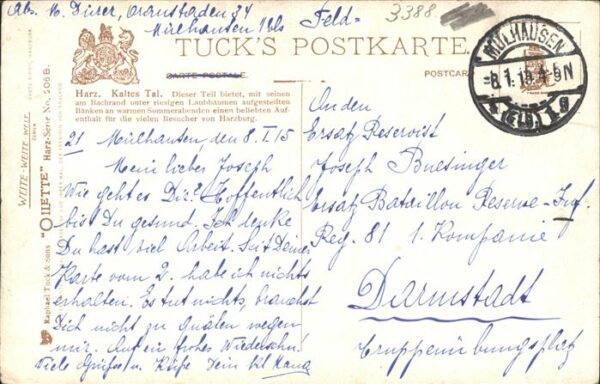 Ab. N. Diner, 34
Mülhausen i/Els
Feld=
3388
TUCK'S POSTKARTE.
CARTE POSTALE
POSTCARD
MÜLHAUSEN
(ELS.)
Harz. Kaltes Tal. Dieser Teil bietet, mit seinen
am Bachrand unter riesigen Laubbäumen aufgestellten
Bänken an warmen Sommerabenden einen beliebten
aufenthalt für die vielen Besucher von Harzburg.
WEITE-WEITE WELT
BERLIN
"OILETTE" Harz-Serie No. 206 B.
Raphael Tuck & Sons
21 Mülhausen, den 8. I. 15
Mein lieber Joseph
Wie geht es Dir? Hoffentlich
bist Du gesund. Ich denke
Du hast viel Arbeit. Seit Deiner
Karte vom 2. habe ich nichts
erhalten. Es tut nichts, brauchst
Dich nicht zu Quälen wegen
mir. Auf ein frohes Wiedersehn!
Viele Grüsse u. Küsse Dein
An den
Ersatz Reservist
Joseph Buesinger
Ersatz Bataillon Reserve-Inf.
Reg. 81 1. Kompanie
Darmstadt
Truppenübungsplatz